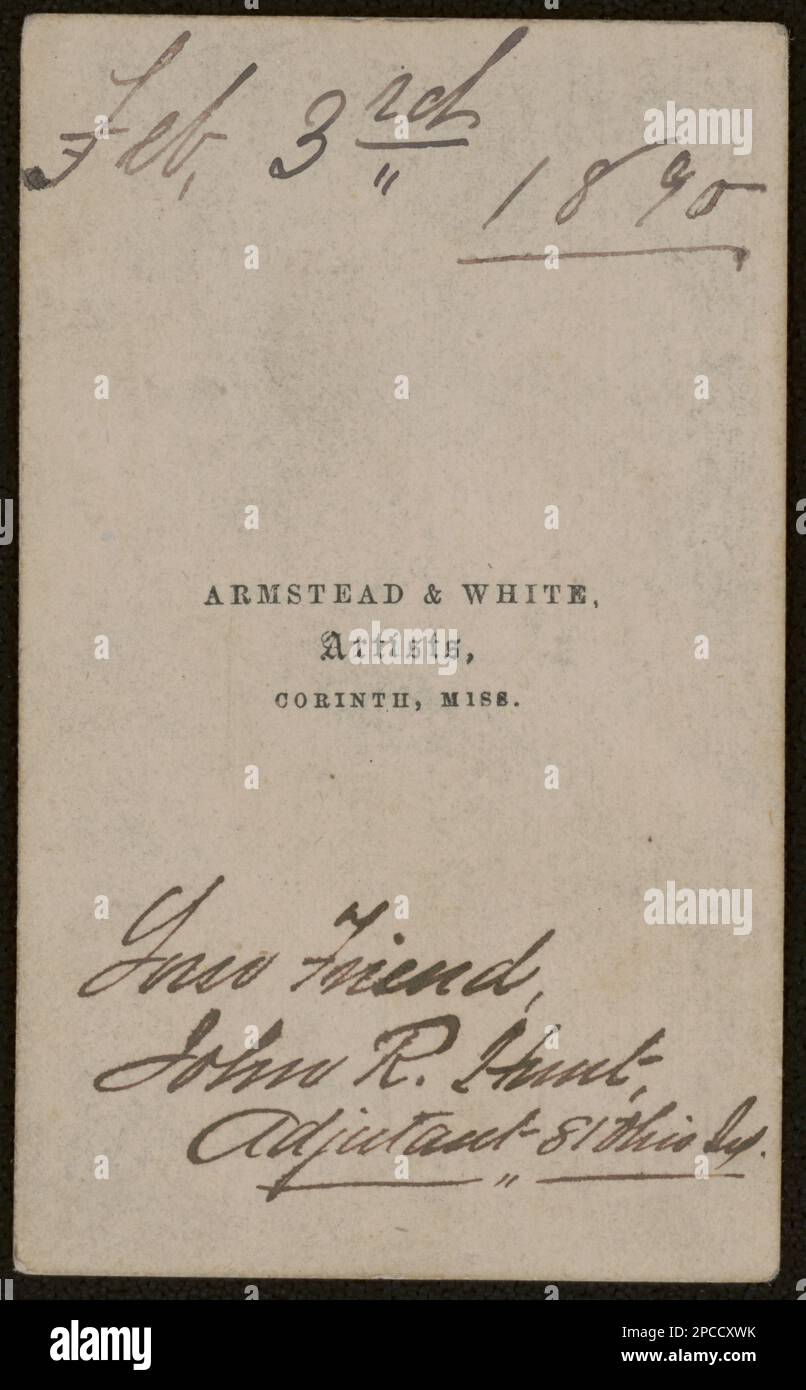 Feb, 3rd
1890
ARMSTEAD & WHITE,
Artists,
CORINTH, MISS.
Your Friend,
John R. Hunt,
Adjutant 81 Ohio Inf.
alamy
Image ID: 2PCCXWK
www.alamy.com